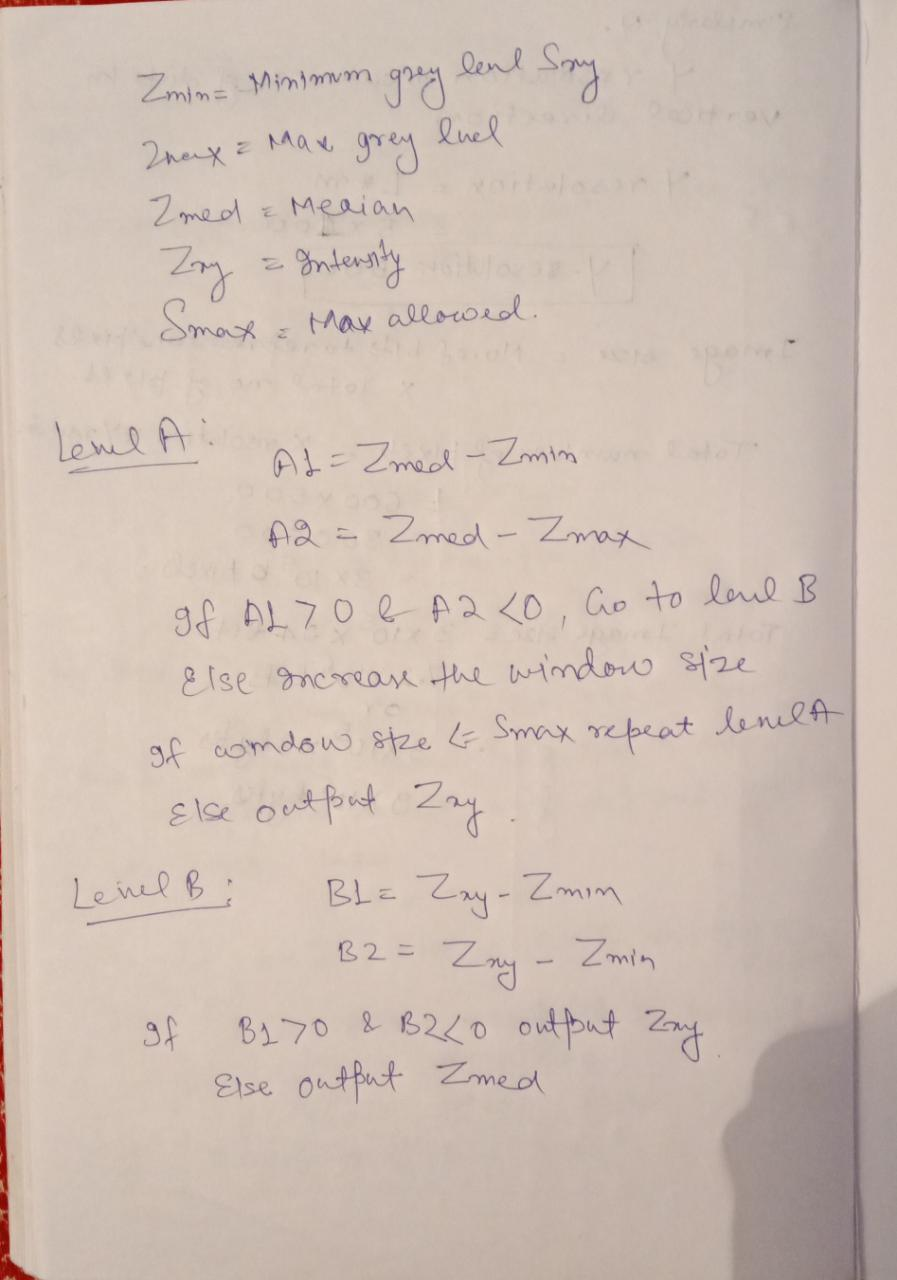 Zmin = Minimum grey level Sxy
Zmax = Max grey level
Zmed = Median
Zxy = Intensity
Smax = Max allowed.
Level A:
A1 = Zmed - Zmin
A2 = Zmed - Zmax
If A1 > 0 & A2 < 0, Go to level B
Else Increase the window size
If window size <= Smax repeat level A
Else output Zxy.
Level B:
B1 = Zxy - Zmin
B2 = Zxy - Zmin
If B1 > 0 & B2 < 0 output Zxy.
Else output Zmed